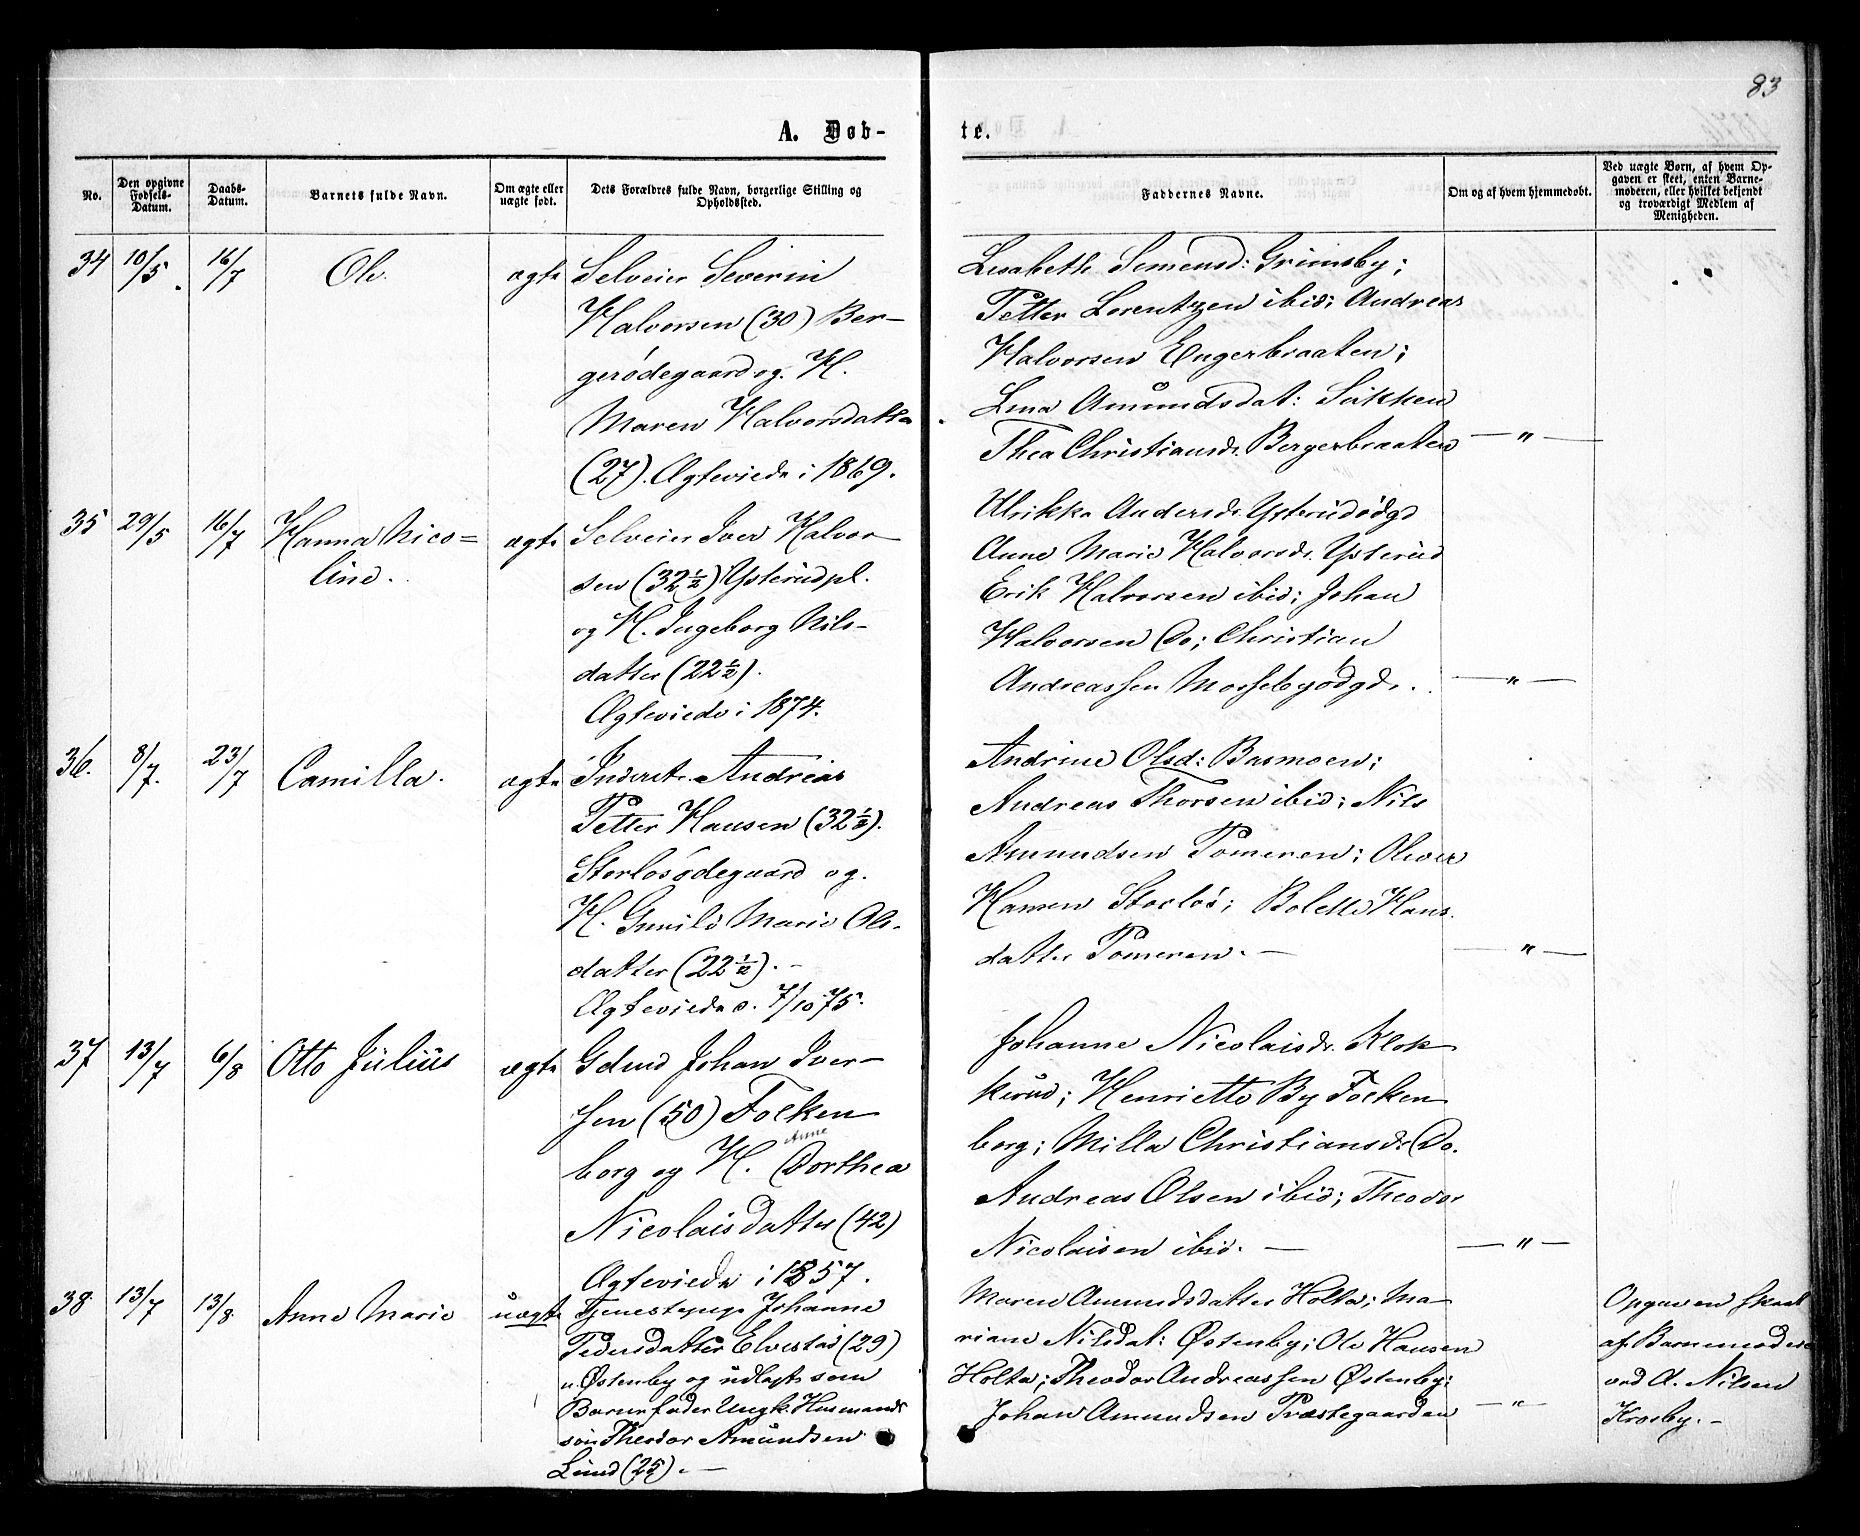 83
A. Døb-
te.
No.
Den opgivne
Fødsels-
Datum.
Daabs-
Datum.
Barnets fulde Navn.
Om ægte eller
uægte født.
Dets Forældres fulde Navn, borgerlige Stilling og
Opholdssted.
Faddernes Navne.
Om og af hvem hjemmedøbt.
Ved uægte Børn, af hvem Op-
gaven er skeet, enten Barne-
moderen, eller hvilket bekjendt
og troværdigt Medlem af
Menigheden.
34 10/5. 16/7 Ole. ægte
Selveier Severin
Halvorsen (30) Ber-
gerødegaard og. H.
Maren Halvorsdatter
(27). Ægteviede i 1869.
Lisabeth Simensd: Grimsby;
Petter Lorentzen ibid; Andreas
Halvorsen Engerbraaten;
Lina Amundsdat:
Thea Christiansdr. Bergerbraaten — " —
35 29/5 16/7 Hanna Nico=
line. ægte
Selveier Iver Halvor-
sen (32 1/2) Ysterudpl.
og H. Ingeborg Nils-
datter (22 1/2).
Ægteviede i 1874.
Ulrikke Andersdr. Ysterudødgd
Anne Marie Halvorsdr. Ysterud
Erik Halvorsen ibid; Johan
Halvorsen Do; Christian
Andreassen Mossebyødgd. — " —
36. 8/7. 23/7 Camilla. ægte
Inderst. Andreas
Petter Hansen (32 1/2).
Storløsødegaard og.
H. Gunild Marie Ols-
datter (22 1/2). -
Ægteviede d. 7/10 75.
Andrine Olsd: Basmoen;
Andreas Thorsen ibid; Nils
Amundsen Tomeren; Oliver
Hansen Storløs; Bolette Hans
datter Tomeren. — — " —
37 13/7 6/8 Otto Julius ægte
Gdmd Johan Iver-
sen (50) Folken-
borg og H. Anne Dorthea
Nicolaisdatter (42)
Ægteviede i 1857.
Johanne Nicolaisdr. Klok-
kerud; Henriette By Folken
borg; Milla Christiansdr. Do.
Andreas Olsen ibid; Theodor
Nicolaisen ibid. — — " —
38 13/7 13/8 Anne Marie uægte
Tjenestepige Johanne
Pedersdatter Elvestad (29)
u. Østenby og udlagt som
Barnefader Ungk. Husmands
søn Theodor Amundsen
Lund (25). —
Maren Amundsdatter Holta; Ma-
riane Nilsdat: Østenby; Ole Hansen
Holta; Theodor Andreassen Østenby;
Johan Amundsen Præstegaarden — " —
Opgaven skeet
af Barnemoderen
ved A. Nilsen
Krosby. -